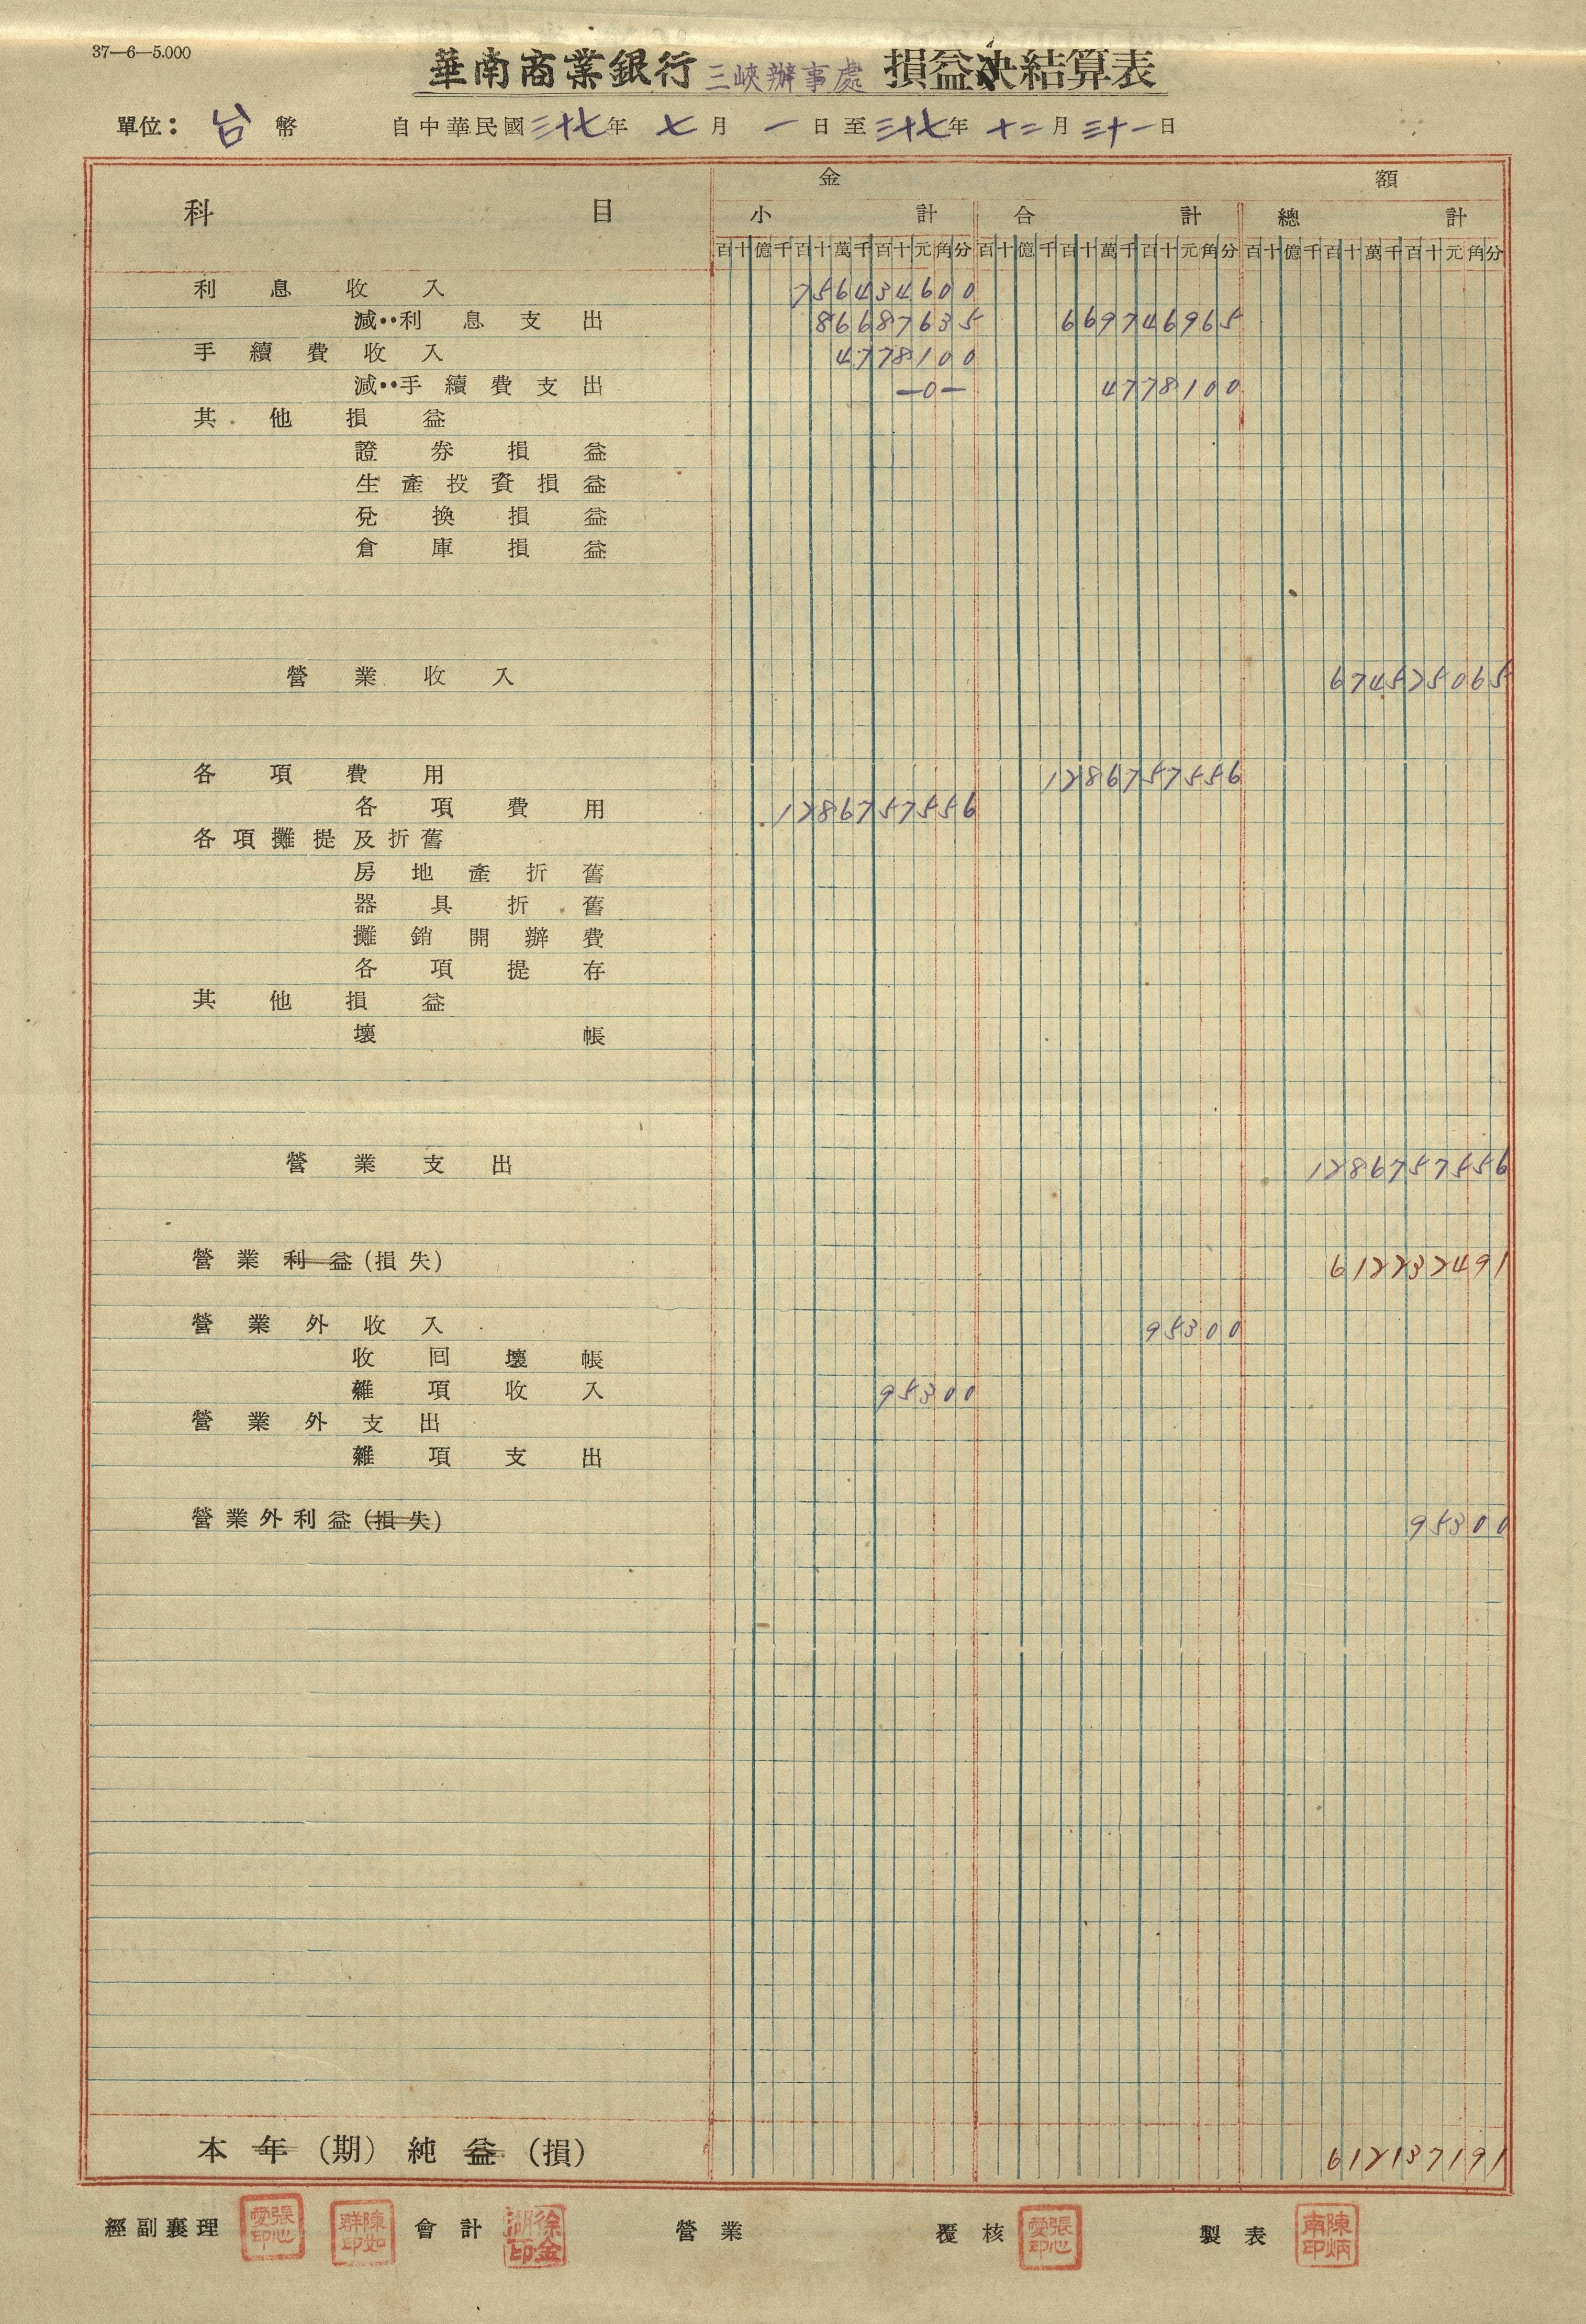 37—6—5.000
華南商業銀行 三峽辦事處 損益決結算表
單位：台幣 自中華民國三十七年七月一日至三十七年十二月三十一日
科目 金額
小計 合計 總計
百十億千百十萬千百十元角分 百十億千百十萬千百十元角分 百十億千百十萬千百十元角分
利息收入 756434600
減：利息支出 86687635 669746965
手續費收入 4778100
減：手續費支出 —0— 4778100
其他損益
證券損益
生產投資損益
兌換損益
倉庫損益
營業收入 674525065
各項費用 1286757556
各項費用 1286757556
各項攤提及折舊
房地產折舊
器具折舊
攤銷開辦費
各項提存
其他損益
壞帳
營業支出 1286757556
營業利益(損失) 612232491
營業外收入 95300
收回壞帳
雜項收入 95300
營業外支出
雜項支出
營業外利益(損失) 95300
本年(期)純益(損) 612137191
經副襄理 張心愛印 陳如群印 會計 徐金湖印 營業 覆核 張心愛印 製表 陳炳南印